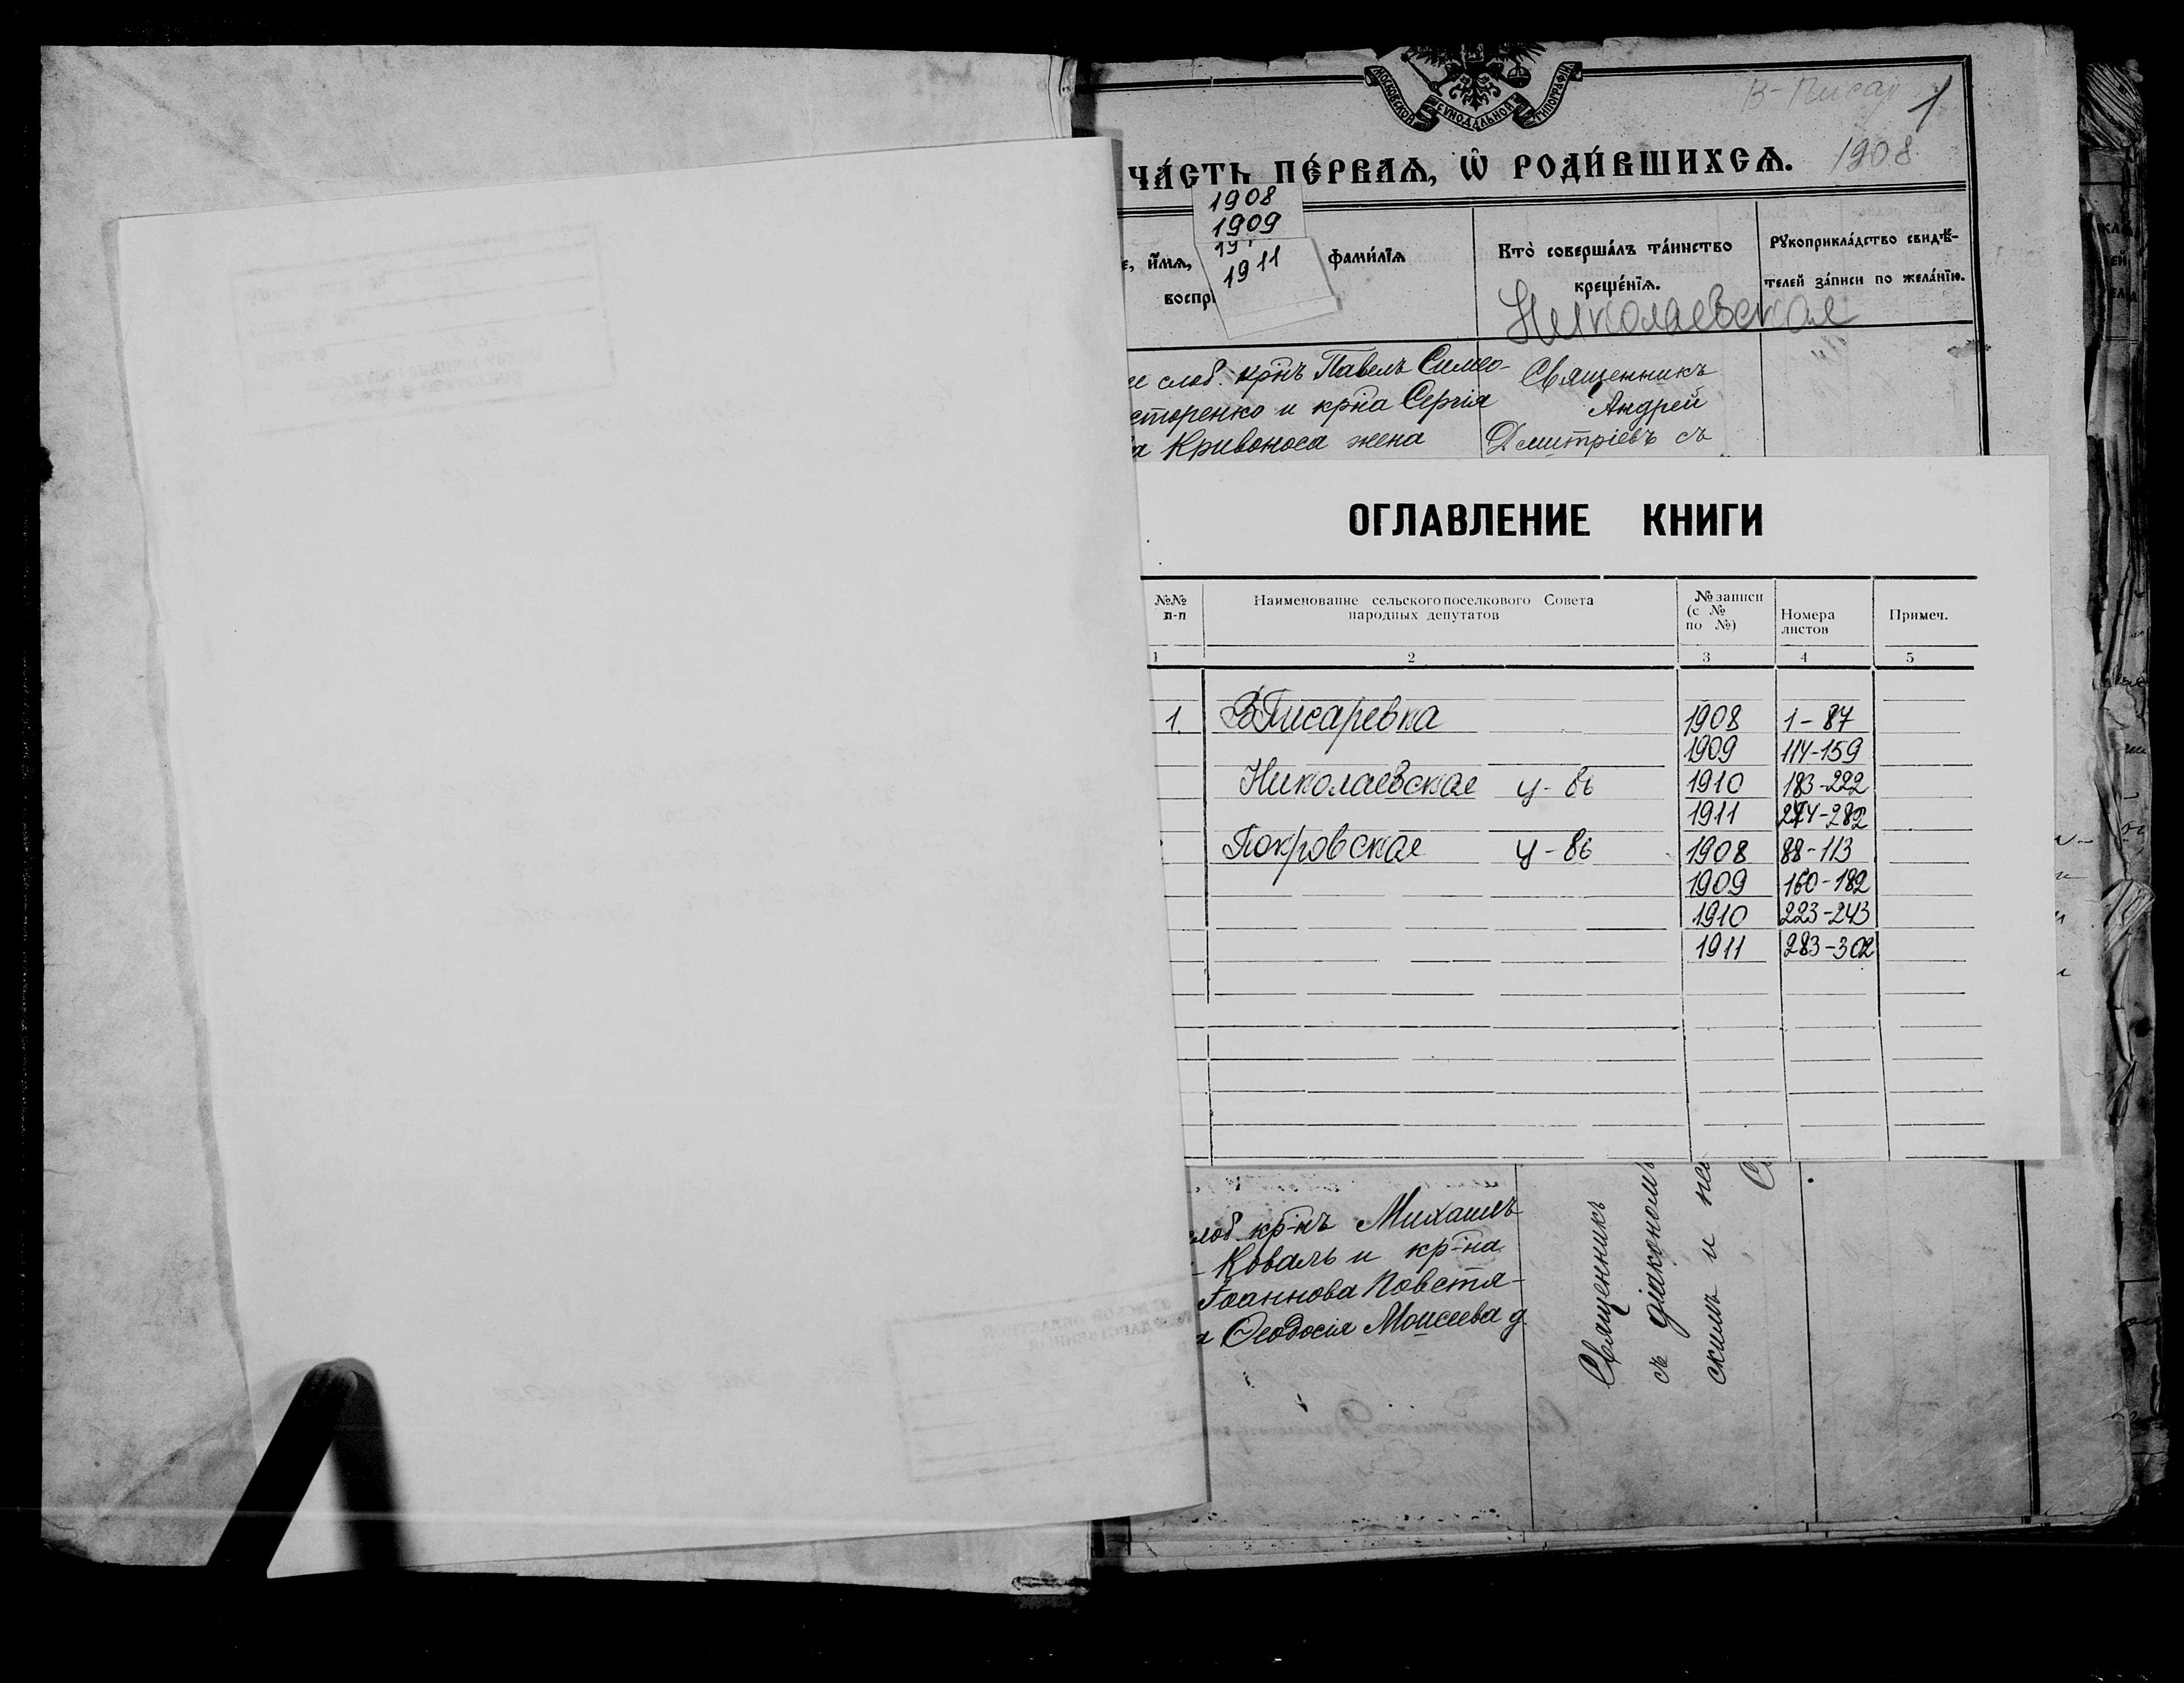 МОСКОВСКОЙ СѴНОДАЛЬНОЙ ТИПОГРАФІИ
В-Писар
1
ЧА́СТЬ ПЕ́РВАѦ, Ѡ҆ РОДИ́ВШИХСѦ. 1908
1908
1909
1911
е, и҆́мѧ,
фами́лїѧ
воспр
Кто̀ соверша́лъ та́инство
креще́нїѧ.
Рꙋкоприкла́дство свидѣ́-
телей за́писи по жела́нїю.
Николаевская
слоб. крнъ Павелъ Симео-
сторенко и крна Сергія
Кривоноса жена
Священникъ
Андрей
Дмитріевъ съ
ОГЛАВЛЕНИЕ КНИГИ
№№ п-п
Наименование сельского поселкового Совета народных депутатов
№ записи (с № по №)
Номера листов
Примеч.
1 2 3 4 5
1. В Писаревка 1908 1-87
1909 114-159
Николаевская ц-вь 1910 183-222
1911 274-282
Покровская ц-вь 1908 88-113
1909 160-182
1910 223-243
1911 283-302
слоб. кр-нъ Михаилъ
Коваль и кр-на
Іоаннова Повстя-
Ѳеодосія Моисеева д
Священникъ
съ діакономъ
скимъ и